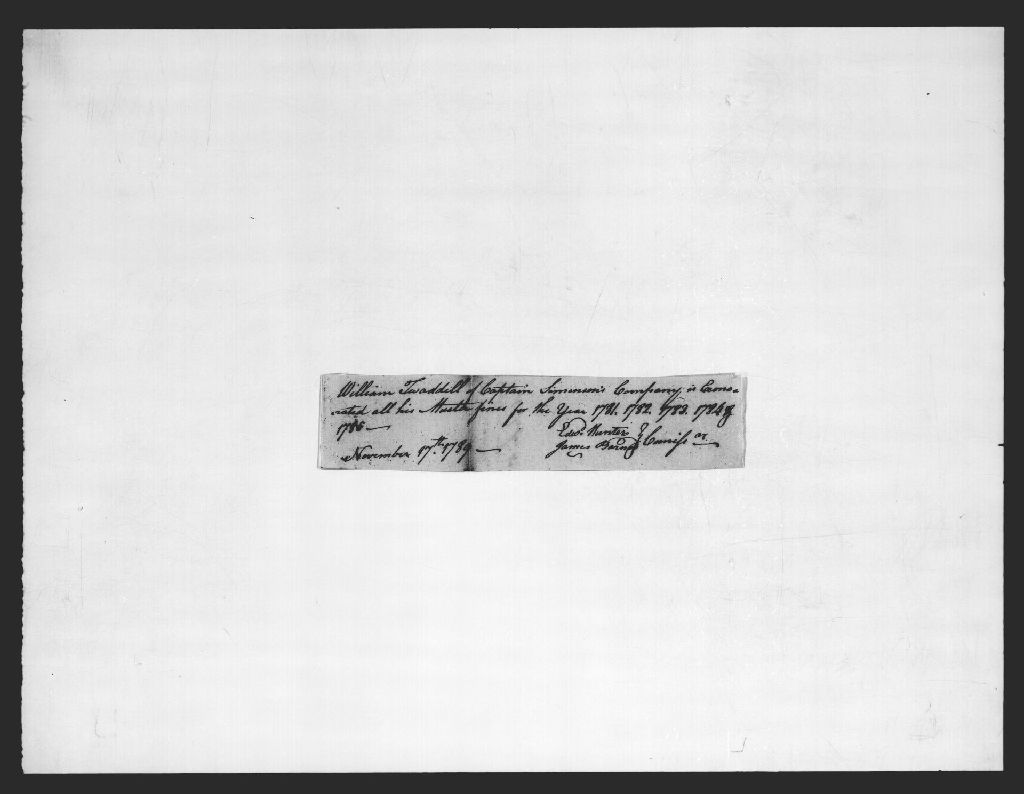 William Twaddell of Captain Simmon's Company is Exone-
rated all his Muster fines for the Year 1781. 1782. 1783. 1784 &
1785 —
Edwd. Hunter
James Barns
November 17th. 1789 —